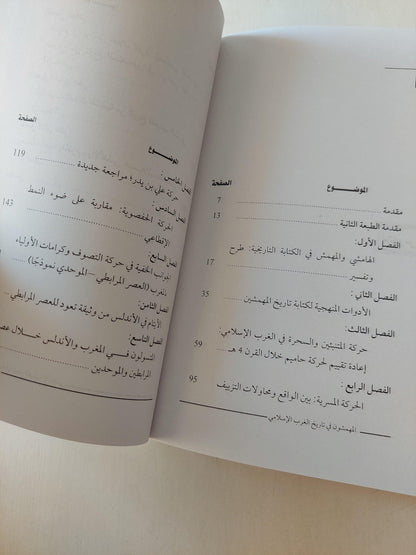 الموضـــوع الصفحة
مقدمة 7
مقدمة الطبعة الثانية 13
الفصل الأول:
الهامشي والمهمش في الكتابة التاريخية: طرح
وتفسير 17
الفصل الثاني:
الأدوات المنهجية لكتابة تاريخ المهمشين 35
الفصل الثالث:
حركة المتنبئين والسحرة في الغرب الإسلامي:
إعادة تقييم لحركة حاميم خلال القرن 4 هـ 59
الفصل الرابع:
الحركة المسرية: بين الواقع ومحاولات التزييف 95
المهمشون في تاريخ الغرب الإسلامي
الموضـــوع الصفحة
الفصل الخامس:
حركة علي بن يدر: مراجعة جديدة 119
الفصل السادس:
الحركة الحفصونية: مقاربة على ضوء النمط
الإقطاعي 143
الفصل السابع:
الجوانب الخفية في حركة التصوف وكرامات الأولياء
بالمغرب (العصر المرابطي – الموحدي نموذجًا)
الفصل الثامن:
الأيتام في الأندلس من وثيقة تعود للعصر المرابطي
الفصل التاسع:
المتسولون في المغرب والأندلس خلال عصر
المرابطين والموحدين